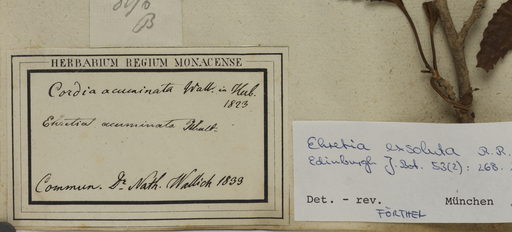 β
HERBARIUM REGIUM MONACENSE
Cordia acuminata Wall. in Herb.
1823
Ehretia acuminata
Commun. Dr Nath. Wallich 1833
Ehretia exsoluta R.R.
Edinburgh J. Bot. 53(2): 268.
Det. - rev. München
FÖRTHER